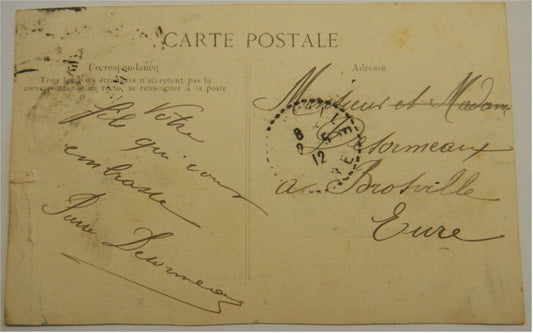 CARTE POSTALE
Correspondance
Tous les pays étrangers n'acceptent pas la
correspondance au recto, se renseigner à la poste
Votre
fils qui vous
embrasse
Pierre Desormeaux
Adresse
Monsieur et Madame
Desormeaux
a Brosville
Eure
8
2
12